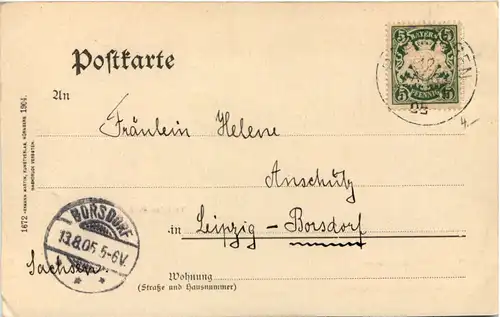 Postkarte
5 BAYERN 5
5 PFENNIG 5
12
05
4.-
An
Fräulein Helene
Anschütz
in Leipzig – Borsdorf
Sachsen.
BORSDORF
13.8.05.5-6V.
Wohnung
(Straße und Hausnummer)
1672 HERMANN MARTIN, KUNSTVERLAG, NÜRNBERG 1904.
NACHDRUCK VERBOTEN.